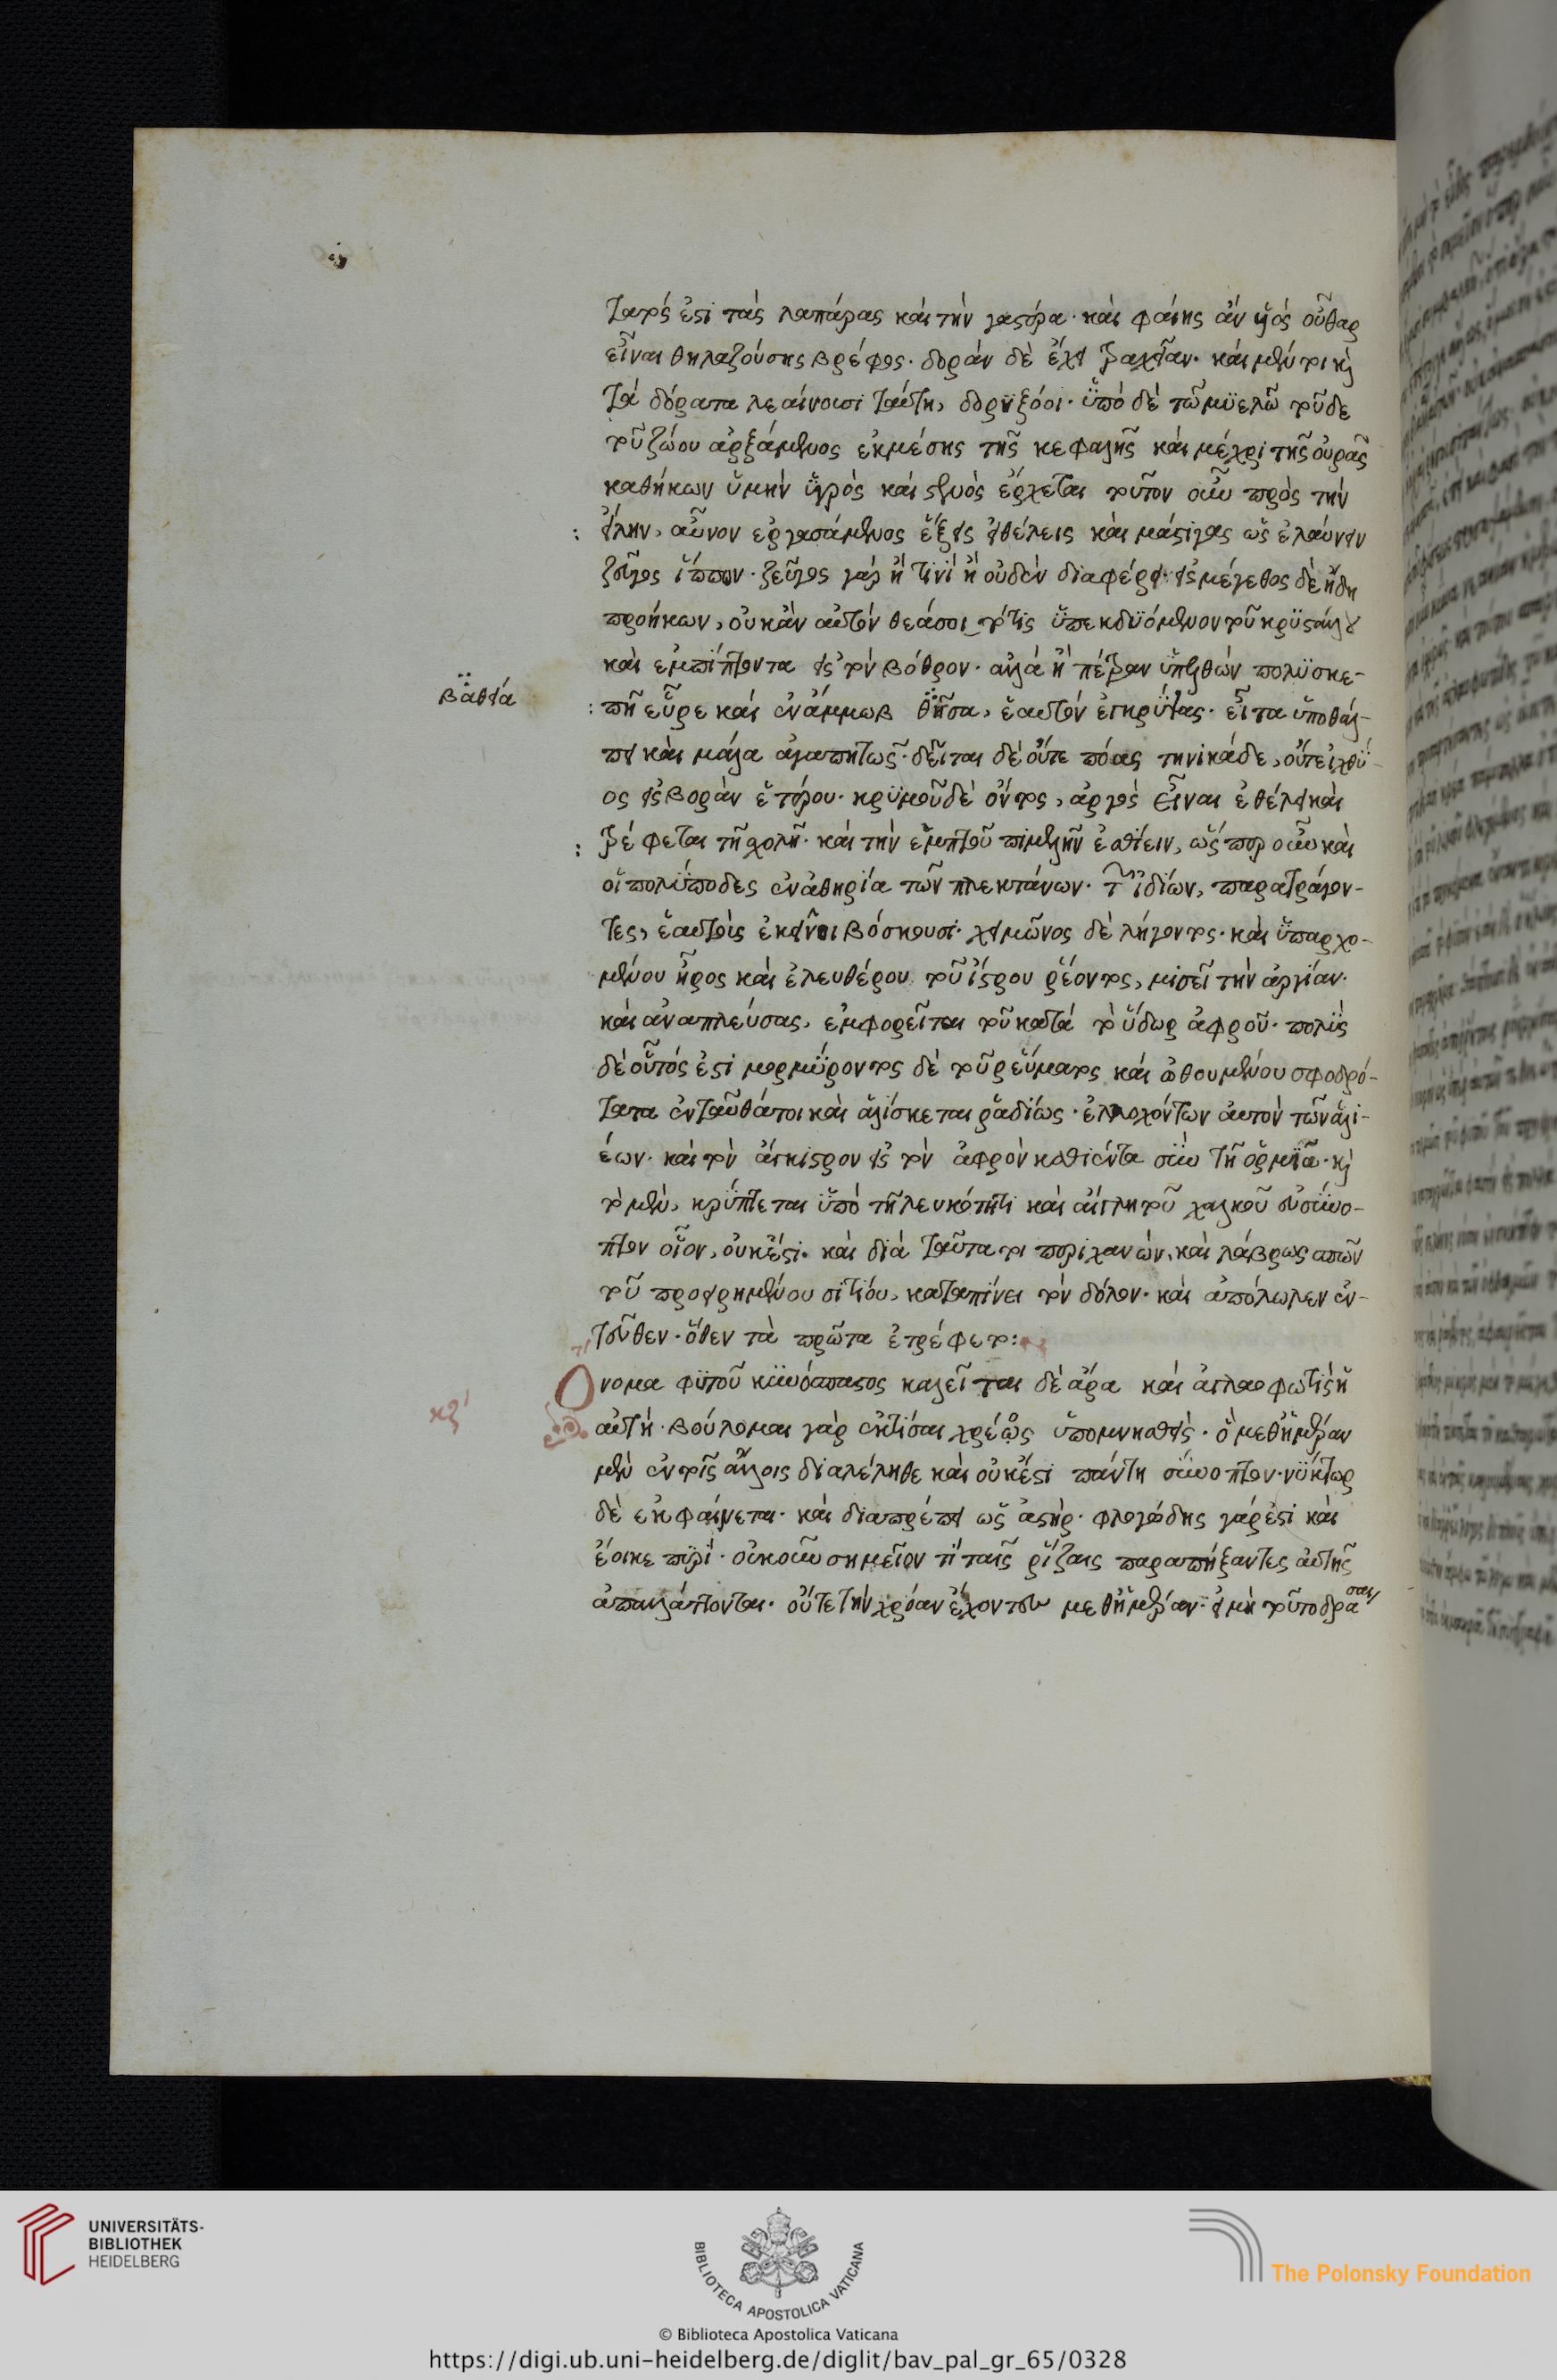 τατός ἐστι τὰς λαπάρας καὶ τὴν γαστέρα· καὶ φαίης ἂν ὑὸς οὖθαρ
εἶναι θηλαζούσης βρέφος. δορὰν δὲ ἔχει τραχεῖαν. καὶ μέντοι κὶ
τὰ δόρατα λεαίνουσι ταύτη, δορυξόοι. ὑπὸ δὲ τῶ μυελῶ τοῦδε
τοῦ ζώου ἀρξάμενος ἐκ μέσης τῆς κεφαλῆς καὶ μέχρι τῆς οὐρᾶς
καθήκων ὑμὴν ὑγρὸς καὶ στενὸς ἔρχεται τοῦτον οὖν πρὸς τὴν
εἵλην, αὖνον ἐργασάμενος ἕξεις εἰ θέλεις καὶ μάστιγας ὡς ἐλαύνειν
ζεῦγος ἵππων. ζεῦγος γὰρ ἤ τινι ἢ οὐδὲν διαφέρει. εἰς μέγεθος δὲ ἤδη
προήκων, οὐκ ἂν αὐτὸν θεάσοιτό τις ὑπεκδυόμενον τοῦ κρυστάλλου
καὶ ἐμπίπτοντα εἰς τὸν βόθρον. ἀλλὰ ἢ πέτραν ὑπελθὼν πολυσκε-
βαθεῖα
πῆ εὗρε καὶ ἐν ἄμμω β θῆσα, ἑαυτὸν ἐγκρύψας. εἶτα ὑποθάλ-
πει καὶ μάλα ἀγαπητῶς. δεῖται δὲ οὔτε πόας τηνικάδε, οὔτε ἰχθύ-
ος εἰς βορὰν ἑτέρου. κρυμοῦ δὲ ὄντος, ἀργὸς εἶναι ἐθέλει καὶ
τρέφεται τῆ χολῆ. καὶ τὴν ἐμπτοῦ πιμελὴν ἐσθίειν, ὥσπερ οὖν καὶ
οἱ πολύποδες ἐν ἀθηρία τῶν πλεκτάνων. τῶν ἰδίων, παρατράγον-
τες, ἑαυτοὺς ἐκεῖνοι βόσκουσι. χειμῶνος δὲ λήγοντος. καὶ ὑπαρχο-
μένου ἦρος καὶ ἐλευθέρου τοῦ ἴστρου ῥέοντος, μισεῖ τὴν ἀργίαν.
καὶ ἀναπλεύσας, ἐμφορεῖται τοῦ κατὰ τὸ ὕδωρ ἀφροῦ. πολὺς
δὲ οὗτός ἐστι μορμύροντος δὲ τοῦ ῥεύματος καὶ ὠθουμένου σφοδρό-
τατα ἐνταῦθά τοι καὶ ἁλίσκεται ῥαδίως. ἐλλοχόντων αὐτὸν τῶν ἁλι-
έων. καὶ τὸν ἄγκιστρον εἰς τὸν ἀφρὸν καθιέντα σὺν τῆ ὁρμιᾶ. κὶ
τὸ μὲν, κρύπτεται ὑπὸ τῆ λευκότητι καὶ αἴγλη τοῦ χαλκοῦ εὐσύνο-
πτον οἷον, οὐκ ἔστι. καὶ διὰ ταῦτά τοι περιχανών, καὶ λάβρως σπῶν
τοῦ προειρημένου σιτίου, καταπίνει τὸν δόλον. καὶ ἀπόλωλεν ἐν-
τεῦθεν. ὅθεν τὰ πρῶτα ἐτρέφετο:
κζ´
Ὄνομα φυτοῦ κυνόσπαστος καλεῖται δὲ ἄρα καὶ ἀγλαοφωτὶς ἡ
αὐτή. βούλομαι γὰρ ἐκτίσαι χρέος ὑπομνησθείς. ὃ μεθ' ἡμέραν
μὲν ἐν τοῖς ἄλλοις διαλέληθε καὶ οὐκ ἔστι πάντη σύνοπτον. νύκτωρ
δὲ ἐκφαίνεται. καὶ διαπρέπει ὡς ἀστήρ. φλογώδης γάρ ἐστι καὶ
ἔοικε πυρί. οὐκοῦν σημεῖόν τι ταῖς ῥίζαις παραπήξαντες αὐτῆς
ἀπαλλάττονται. οὔτε τὴν χρόαν ἔχοντες μεθ' ἡμέραν. εἰ μὴ τοῦτο δρα
σαι
UNIVERSITÄTS-
BIBLIOTHEK
HEIDELBERG
BIBLIOTECA APOSTOLICA VATICANA
The Polonsky Foundation
© Biblioteca Apostolica Vaticana
https://digi.ub.uni-heidelberg.de/diglit/bav_pal_gr_65/0328